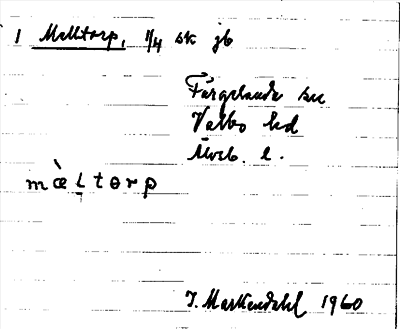 1 Melltorp, 1/4 sk jb
Färgelanda sn
Valbo hd
Älvsb. l.
mæ̀ḷtɵrp
I. Markendahl 1960